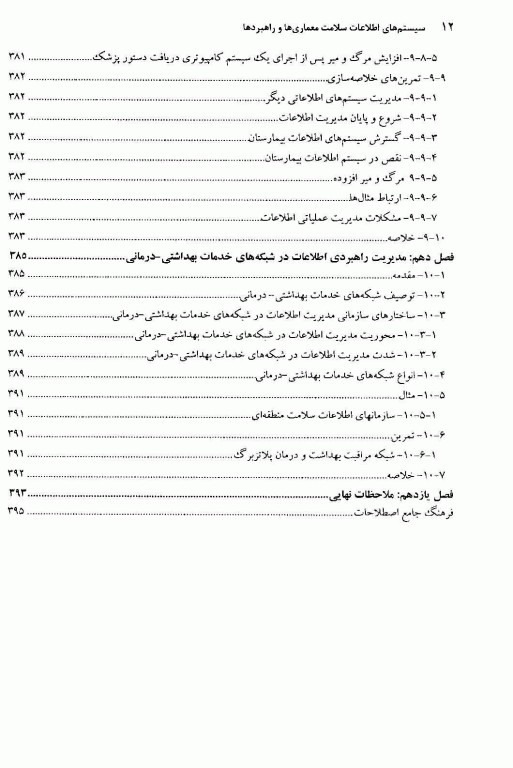 ۱۲ سیستم‌های اطلاعات سلامت معماری‌ها و راهبردها
۹-۸-۵- افزایش مرگ و میر پس از اجرای یک سیستم کامپیوتری دریافت دستور پزشک ۳۸۱
۹-۹- تمرین‌های خلاصه‌سازی ۳۸۲
۹-۹-۱- مدیریت سیستم‌های اطلاعاتی دیگر ۳۸۲
۹-۹-۲- شروع و پایان مدیریت اطلاعات ۳۸۲
۹-۹-۳- گسترش سیستم‌های اطلاعات بیمارستان ۳۸۲
۹-۹-۴- نقص در سیستم اطلاعات بیمارستان ۳۸۲
۹-۹-۵ مرگ و میر افزوده ۳۸۳
۹-۹-۶- ارتباط مثال‌ها ۳۸۳
۹-۹-۷- مشکلات مدیریت عملیاتی اطلاعات ۳۸۳
۹-۱۰- خلاصه ۳۸۳
فصل دهم: مدیریت راهبردی اطلاعات در شبکه‌های خدمات بهداشتی-درمانی ۳۸۵
۱۰-۱- مقدمه ۳۸۵
۱۰-۲- توصیف شبکه‌های خدمات بهداشتی- درمانی ۳۸۶
۱۰-۳- ساختارهای سازمانی مدیریت اطلاعات در شبکه‌های خدمات بهداشتی-درمانی ۳۸۷
۱۰-۳-۱- محوریت مدیریت اطلاعات در شبکه‌های خدمات بهداشتی-درمانی ۳۸۸
۱۰-۳-۲- شدت مدیریت اطلاعات در شبکه‌های خدمات بهداشتی-درمانی ۳۸۹
۱۰-۴- انواع شبکه‌های خدمات بهداشتی-درمانی ۳۸۹
۱۰-۵- مثال ۳۹۱
۱۰-۵-۱- سازمانهای اطلاعات سلامت منطقه‌ای ۳۹۱
۱۰-۶- تمرین ۳۹۱
۱۰-۶-۱- شبکه مراقبت بهداشت و درمان پلاتزبرگ ۳۹۱
۱۰-۷- خلاصه ۳۹۲
فصل یازدهم: ملاحظات نهایی ۳۹۳
فرهنگ جامع اصطلاحات ۳۹۵